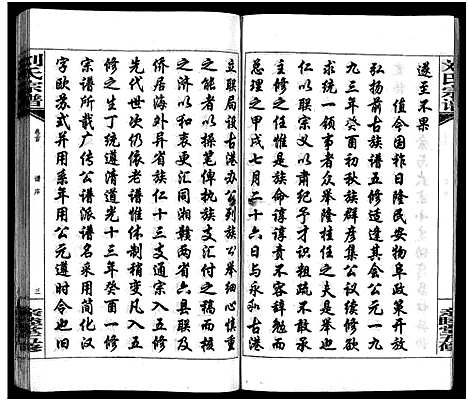 刘氏宗谱
遂至不果
值今国祚日隆民安物阜政策开放
弘扬前古族谱五修适逢其会公元一九
九三年癸酉初秋族群彦集公议续修欲
求统一领事者众举隆桂任之夫是举也
仁以联宗义以肃纪予才识粗疏不敢承
主修之任惟是族命谆谆责不容辞勉而
总理之甲戌七月二十六日与永和古港
立联局设古港办公列族公举细心慎重
之能者以操笔俾执族支汇付之稿而核
之济以和衷更汇同湘赣两省六县联及
侨居海外异省族仁十三支通宗入五修
先代世次仍依老谱惟体制稍变凡入五
修之生丁统遵清道光十三年癸酉一修
宗谱所载广传公谱派谱名采用简化汉
字欧苏式并用系年用公元遵时令也旧
刘氏宗谱
卷首
谱序
三